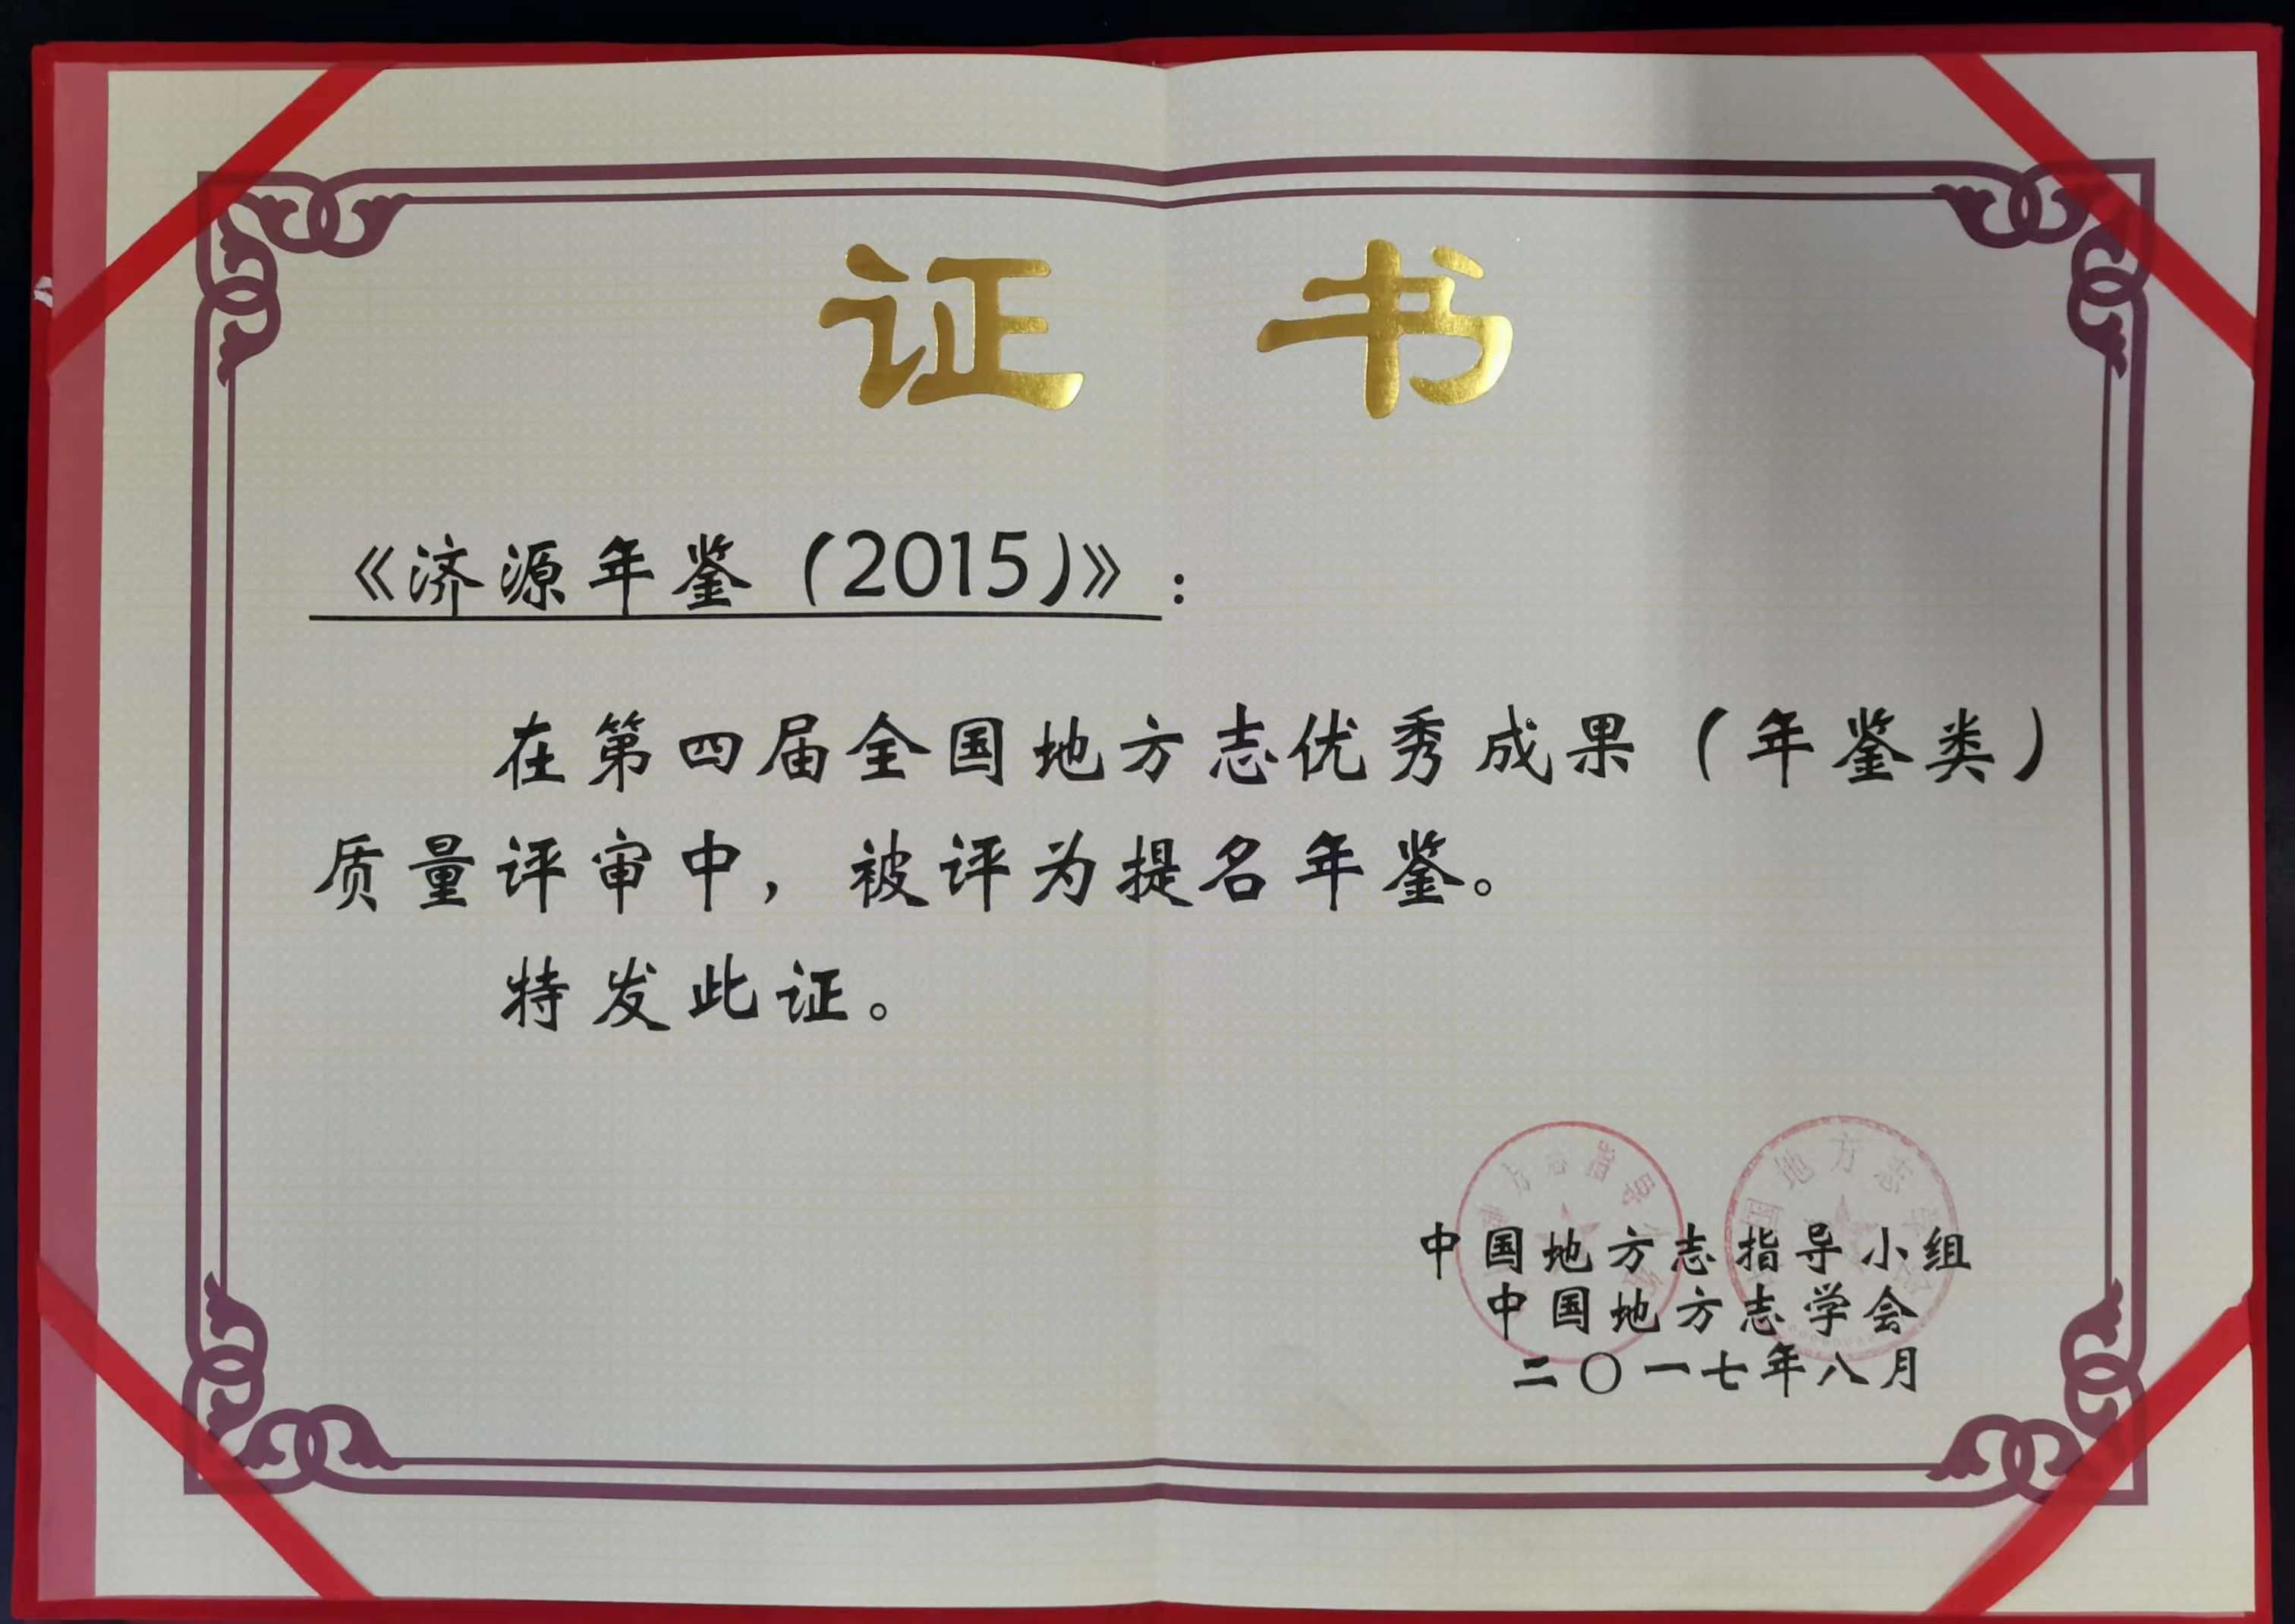 证书
《济源年鉴（2015）》：
在第四届全国地方志优秀成果（年鉴类）
质量评审中，被评为提名年鉴。
特发此证。
中国地方志指导小组
中国地方志学会
二〇一七年八月